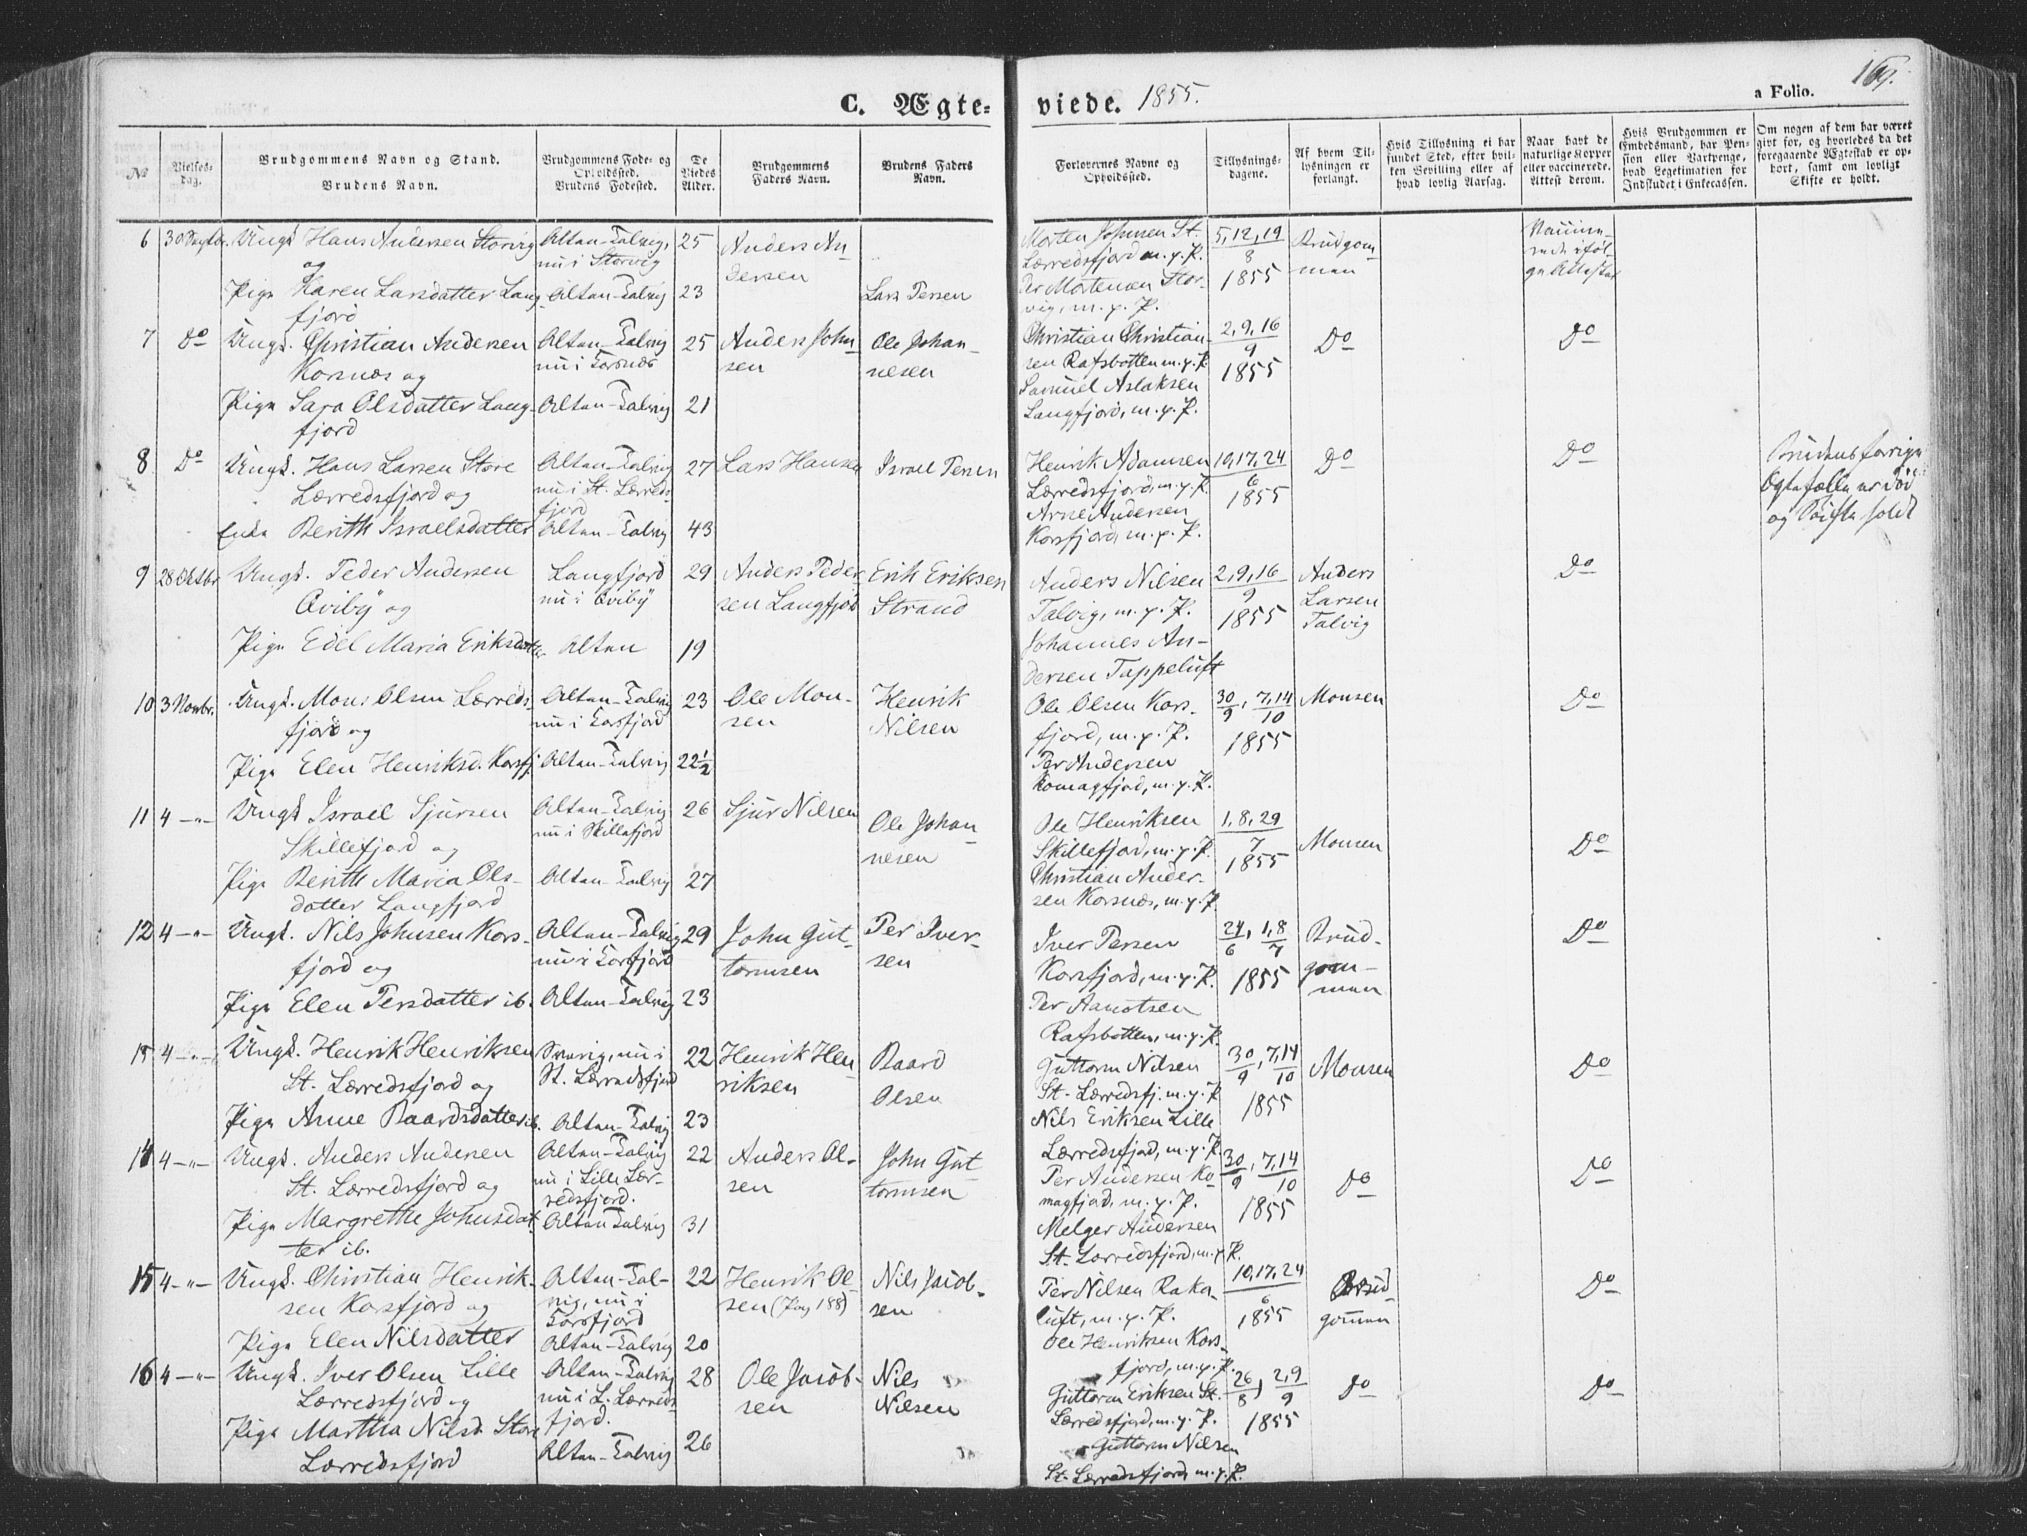 C. Ægte-
viede. 1855.
a Folio.
No
Vielses-
dag.
Brudgommens Navn og Stand.
Brudens Navn.
Brudgommens Føde- og
Opholdssted.
Brudens Fødested.
De
Viedes
Alder.
Brudgommens
Faders Navn.
Brudens Faders
Navn.
Forlovernes Navne og
Opholdssted.
Tillysnings-
dagene.
Af hvem Til-
lysningen er
forlangt.
Hvis Tillysning ei har
fundet Sted, efter hvil-
ken Bevilling eller af
hvad lovlig Aarsag.
Naar havt de
naturlige Kopper
eller vaccinerede.
Attest derom.
Hvis Brudgommen er
Embedsmand, har Pen-
sion eller Vartpenge,
hvad Legitimation for
Indskudet i Enkecassen.
Om nogen af dem har været
givt for, og hvorledes da det
foregaaende Ægteskab er op-
hørt, samt om lovligt
Skifte er holdt.
6 30 Septbr. Ungk. Hans Andersen Storvig
og
Pige Karen Larsdatter Lang-
fjord
Alten-Talvig,
nu i Storvig
Alten-Talvig
25
23
Anders An-
dersen
Lars Persen
Morten Johnsen St.
Lerredsfjord m. p. P.
Per Mortensen Stor-
vig, m. p. P.
5, 12, 19
8
1855
Brudgom-
men
Vaccine-
rede iføl-
ge Attester
7 Do Ungk. Christian Andersen
Korsnæs og
Pige Sara Olsdatter Lang-
fjord
Alten-Talvig
nu i Korsnæs
Alten-Talvig
25
21
Anders John-
sen
Ole Johan-
nesen
Christian Christian-
sen Rafsbotten m. p. P.
Samuel Aslaksen
Langfjord, m. p. P.
2, 9, 16
9
1855
Do
Do
8 Do Ungk. Hans Larsen Store
Lerredsfjord og
Enke Berith Israelsdatter
Alten-Talvig
nu i St. Lerreds-
fjord
Alten-Talvig
27
43
Lars Hansen
Israel Persen
Henrik Adamsen
Lerredsfjord, m. p. P.
Arne Andersen
Korsfjord, m. p. P.
10, 17, 24
6
1855
Do
Do
Brudens forrige
Ægtefælle er död
og Skifte holdt
9 28 Oktbr Ungk. Peder Andersen
Qviby og
Pige Edel Maria Eriksdatter
Langfjord
nu i Qviby
Alten
29
19
Anders Peder-
sen Langfjord
Erik Eriksen
Strand
Anders Nilsen
Talvig, m. p. P.
Johannes An-
dersen Tappeluft
2, 9, 16
9
1855
Anders
Larsen
Talvig
Do
10 3 Novbr. Ungk. Mons Olsen Lerreds-
fjord og
Pige Elen Henriksd. Korsfj.
Alten-Talvig
nu i Korsfjord
Alten-Talvig
23
22½
Ole Mon-
sen
Henrik
Nilsen
Ole Olsen Kors-
fjord, m. p. P.
Per Andersen
Komagfjord, m. p. P.
30/9, 7,14/10
1855
Monsen
Do
11 4 -"- Ungk Israel Sjursen
Skillefjord og
Pige Berith Maria Ols-
datter Langfjord
Alten-Talvig
nu i Skillefjord
Alten-Talvig
26
27
Sjur Nilsen
Ole Johan-
nesen
Ole Henriksen
Skillefjord, m. p. P.
Christian Ander-
sen Korsnæs, m. p. P
1, 8, 29
7
1855
Monsen
Do
12 4 -"- Ungk. Nils Johnsen Kors-
fjord og
Pige Elen Persdatter ib.
Alten-Talvig
nu i Korsfjord
Alten-Talvig
29
23
John Gut-
tormsen
Per Iver-
sen
Iver Persen
Korsfjord, m. p. P.
Per Arnotsen
Rafsbotten, m. p. P.
24/6, 1,8/7
1855
Brud-
gom-
men
Do
13 4 -"- Ungk. Henrik Henriksen
St. Lerredsfjord og
Pige Anne Baardsdatter ib.
nu i
St. Lerredsfjord
Alten-Talvig
22
23
Henrik Hen-
riksen
Baard
Olsen
Guttorm Nilsen
St. Lerredsfj. m. p. P
Nils Eriksen Lille
Lerredsfjord, m. p. P.
30/9, 7,14/10
1855
Monsen
Do
14 4 -"- Ungk. Anders Andersen
St. Lerredsfjord og
Pige Margrethe Johnsdat-
ter ib.
Alten-Talvig
nu i Lille Ler-
redsfjord.
Alten Talvig
22
31
Anders Ol-
sen
John Gut-
tormsen
Per Andersen Ko-
magfjord, m. p. P.
Melger Andersen
St. Lerredsfjord, m. p. P.
30/9, 7,14/10
1855
Do
Do
15 4 -"- Ungk. Christian Henrik-
sen Korsfjord og
Pige Elen Nilsdatter
Alten-Tal-
vig, nu i
Korsfjord
Alten-Talvig
22
20
Henrik Ol-
sen (Pag 188)
Nils Jacob-
sen
Per Nilsen Rake-
luft, m. p. P.
Ole Henriksen Kors-
fjord, m. p. P.
10, 17, 24
6
1855
Brud-
gommen
Do
16 4 -"- Ungk. Iver Olsen Lille
Lerredsfjord og
Pige Martha Nilsd. Store
Lerredsfjord
Alten-Talvig
nu i L. Lerreds-
fjord.
Alten-Talvig
28
26
Ole Jacob-
sen
Nils
Nilsen
Guttorm Eriksen St.
Lerredsfjord, m. p. P.
Guttorm Nilsen
St. Lerredsfjord, m. p. P.
26/8, 2,9/9
1855
Do
Do